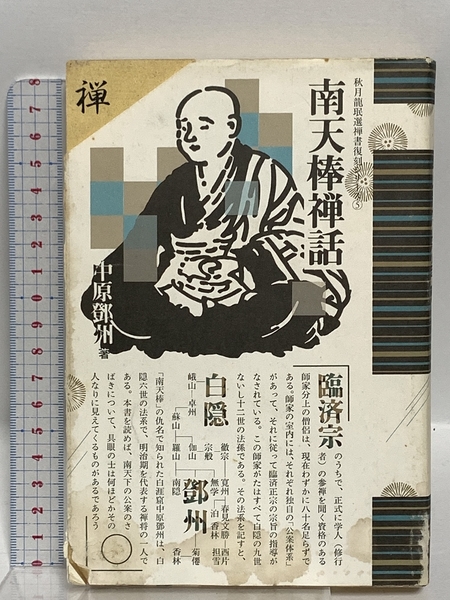 禅
秋月龍珉選禅書復刻シリーズ⑤
南天棒禅話
中原鄧州著
臨済宗のうちで、正式に学人(修行
者)の参禅を聞く資格のある
師家分上の僧侶は、現在わずかに八十名足らずで
ある。師家の室内には、それぞれ独自の「公案体系」
があって、それに従って臨済正宗の宗旨の指導が
なされている。この師家がたはすべて白隠の九世
ないし十二世の法孫である。その法系を記すと、
白隠
峨山
卓州
蘇山
羅山
南隠
伽山
宗般
徹宗
無学
寛州
春見文勝
西片担雪
泊
香林
鄧州
菊僊
香林
「南天棒」の仇名で知られた白涯窟中原鄧州は、白
隠六世の法系で、明治期を代表する禅将の一人で
ある。本書を読めば、南天下の公案のさ
ばきについて、具眼の士は何ほどかその
人なりに見えてくるものがあるであろう
8 7 6 5 4 3 2 1 0 9 8 7 6 5 4 3 2 1 0